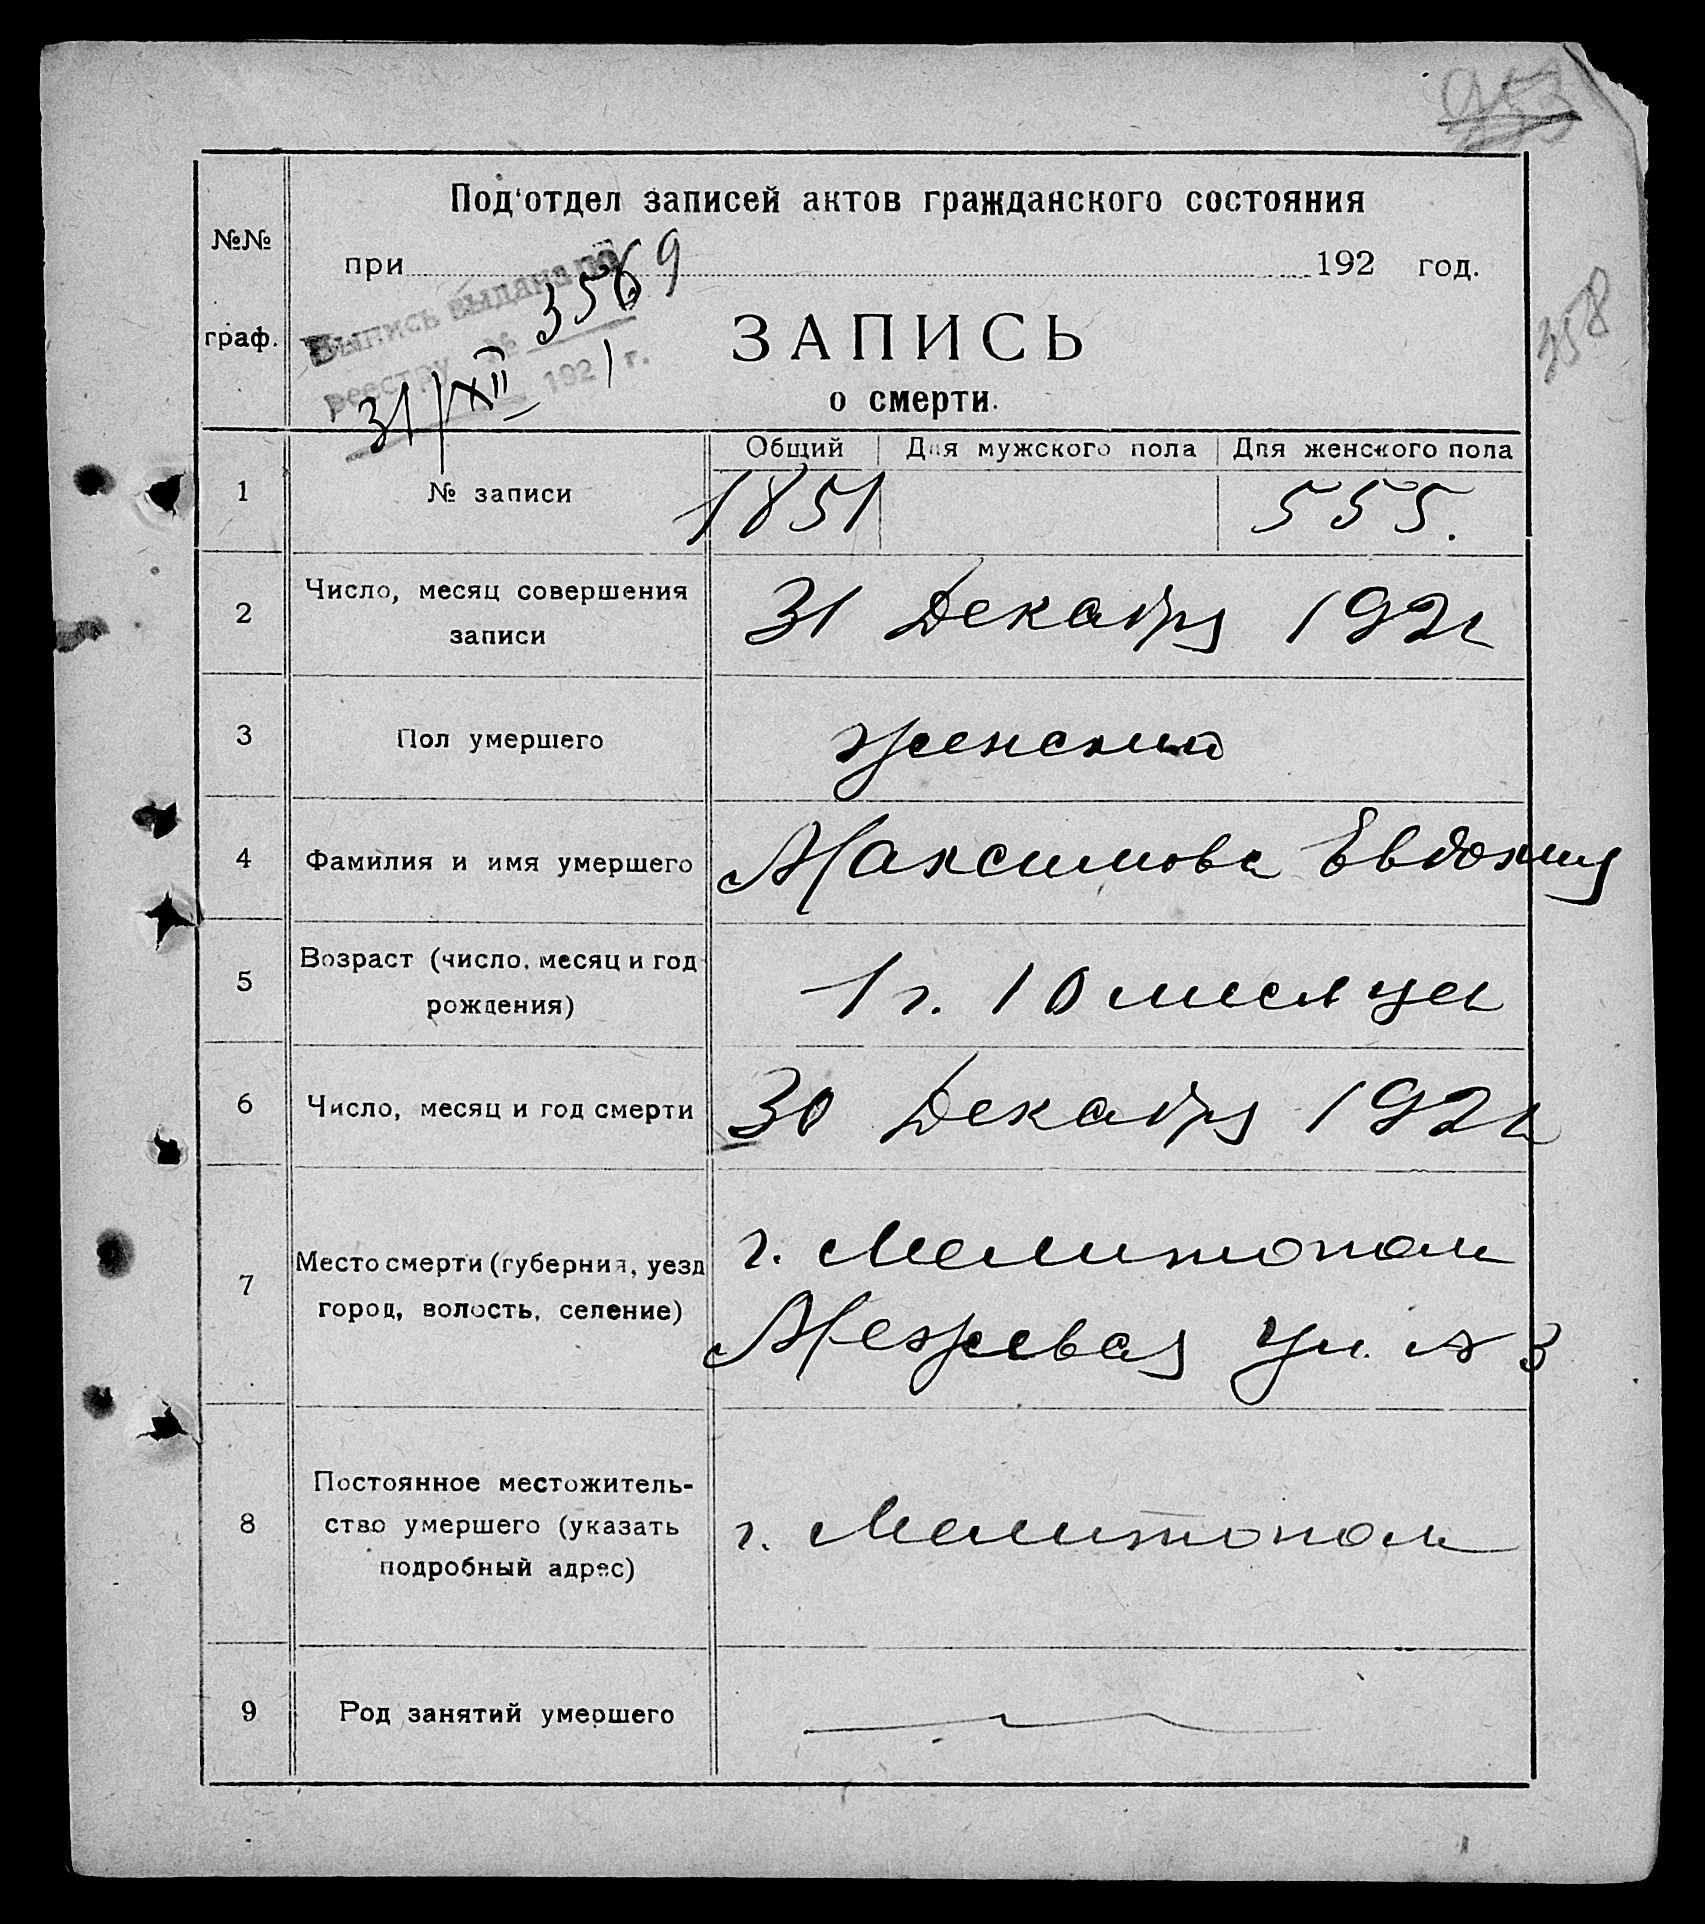 953
Под'отдел записей актов гражданского состояния
№№
при 192 год.
Выпись выдана по
реестру № 3569
31/XII 1921 г.
358
граф.
ЗАПИСЬ
о смерти.
Общий Для мужского пола Для женского пола
1 № записи 1851 555.
2 Число, месяц совершения
записи
31 Декабря 1921
3 Пол умершего женский
4 Фамилия и имя умершего Максимова Евдокия
5 Возраст (число, месяц и год
рождения)
1 г. 10 месяцев
6 Число, месяц и год смерти 30 Декабря 1921
7 Место смерти (губерния, уезд
город, волость, селение)
г. Мелитополь
Межевая ул. № 3
8 Постоянное местожитель-
ство умершего (указать
подробный адрес)
г. Мелитополь
9 Род занятий умершего